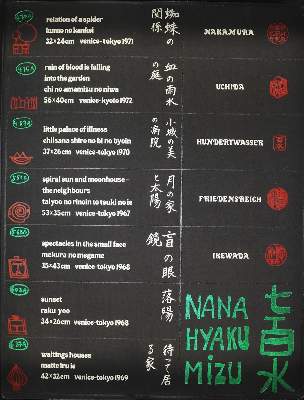 relation of a spider
kumo no kankei
32×24cm venice-tokyo 1971
蜘蛛の
関係
NAKAMURA
rain of blood is falling
into the garden
chi no amamizu no niwa
56×40cm venice-kyoto 1972
血の雨水
の庭
UCHIDA
little palace of illness
chiisana shiro no bi no byoin
37×26cm venice-tokyo 1970
小城の美
の病院
HUNDERTWASSER
spiral sun and moonhouse -
the neighbours
taiyoo no rinoin to tsuki no ie
53×35cm venice-tokyo 1967
月の家
と太陽
FRIEDENSREICH
spectacles in the small face
mekura no megame
35×43cm venice-tokyo 1968
盲の眼
鏡
IKEWADA
sunset
raku yoo
34×26cm venice-tokyo 1968
落陽
waitings houses
matte iru ie
42×32cm venice-tokyo 1969
待って居
る家
NANA
HYAKU
MIZU
七百水